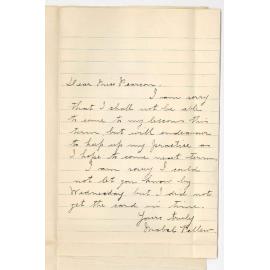 Dear Miss Pearson.
I am sorry
that I shall not be able
to come to my lessons this
term but will endeavour
to keep up my practise as
I hope to come next term.
I am sorry I could
not let you know by
Wednesday but I did not
get the card in time.
Yours truly
Mabel